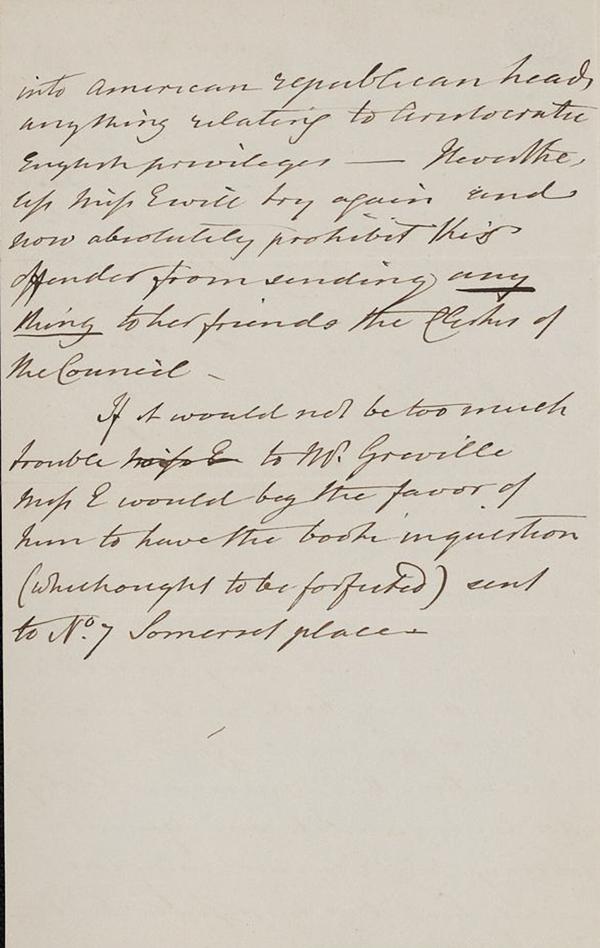 into American republican heads
anything relating to Aristocratic
English privileges — Neverthe,
less Miss E will try again and
now absolutely prohibit this
offender from sending any
thing to her friends the Clerks of
the Council –
If it would not be too much
trouble Miss E to Mr. Greville
Miss E would beg the favor of
him to have the book in question
(which ought to be forfeited) sent
to No. 7 Somerset place –